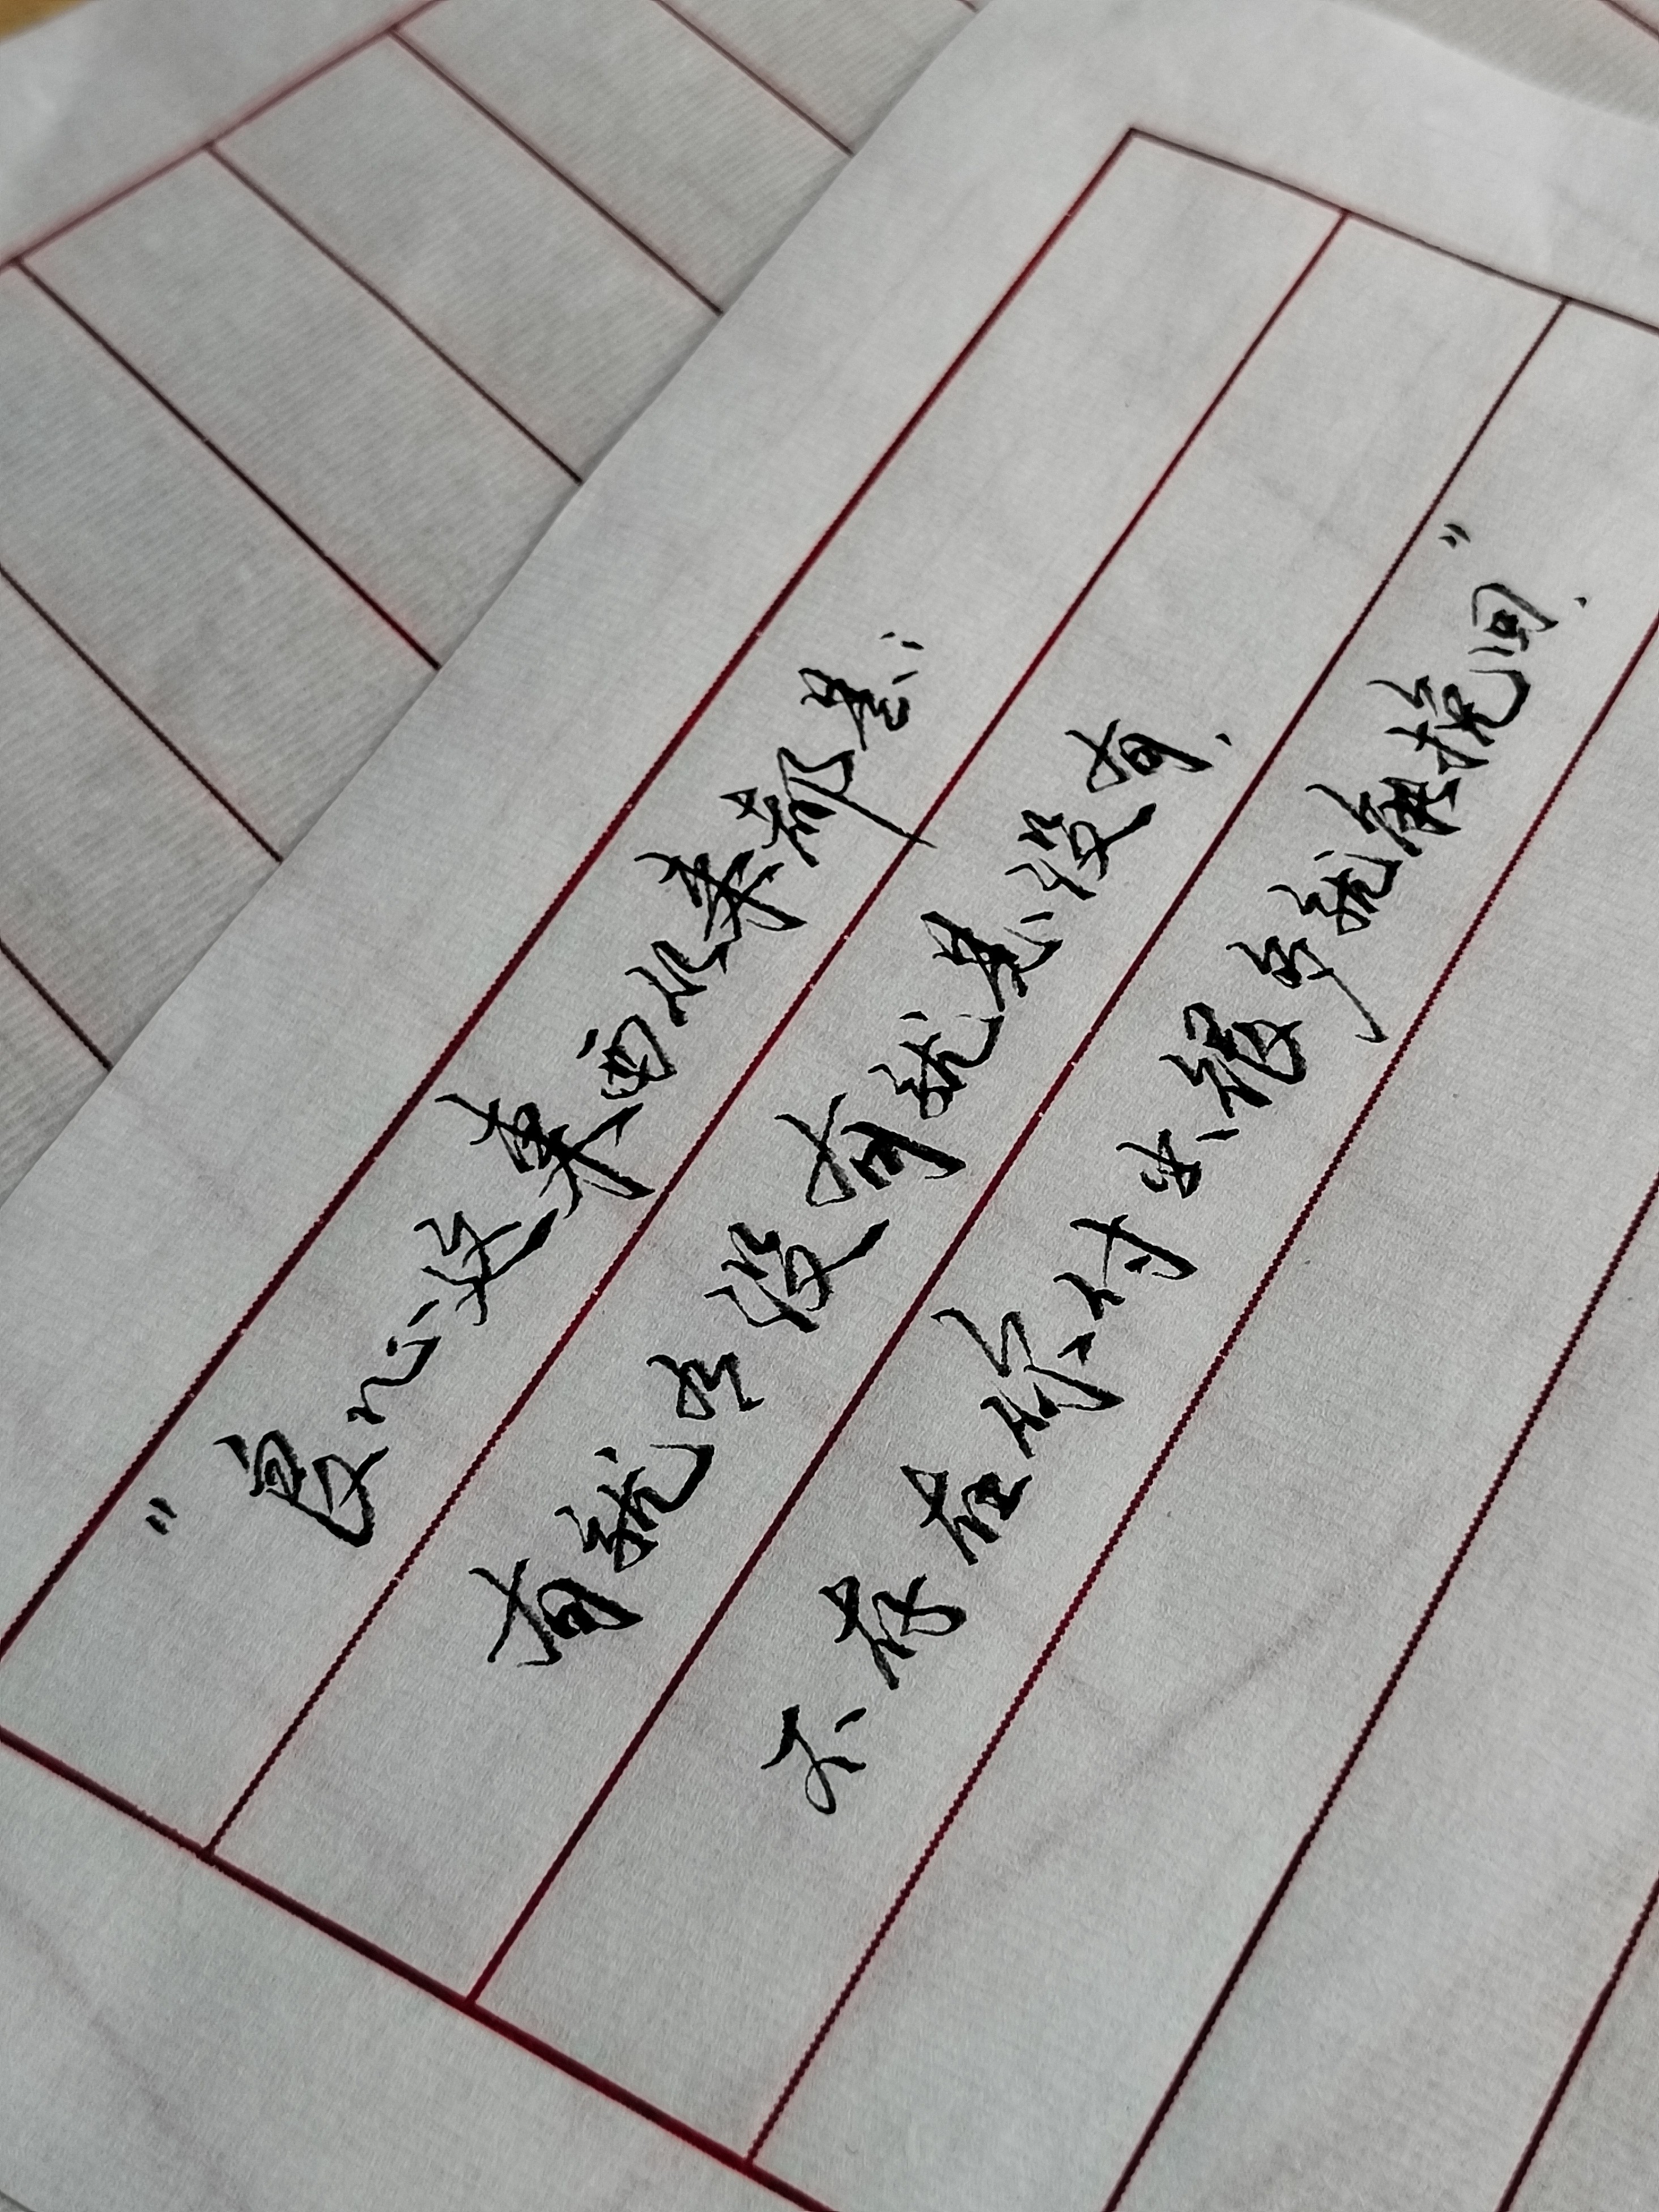 “真心这东西从来都是:
有就有没有就是没有,
不存在你付出很多就能挽回.”